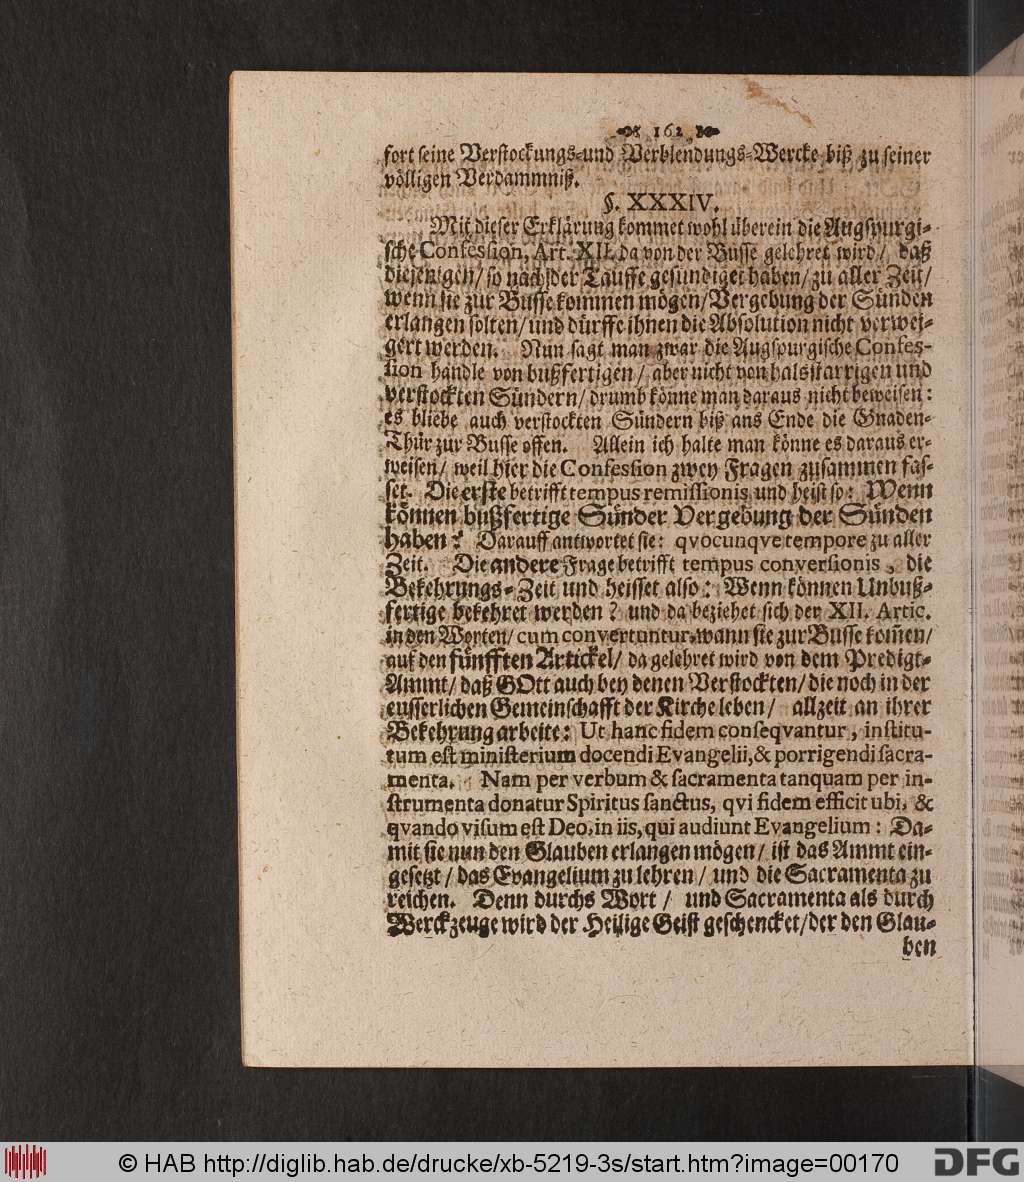 162
fort seine Verstockungs-und Verblendungs-Wercke biß zu seiner
völligen Verdammniß.
§. XXXIV.
Mit dieser Erklärung kommet wohl überein die Augspurgi-
sche Confession, Art. XII. da von der Busse gelehret wird/ daß
diejenigen/ so nach der Tauffe gesündiget haben/ zu aller Zeit/
wenn sie zur Busse kommen mögen/ Vergebung der Sünden
erlangen solten/ und dürffe ihnen die Absolution nicht verwei-
gert werden. Nun sagt man zwar die Augspurgische Confes-
sion handle von bußfertigen/ aber nicht von halsstarrigen und
verstockten Sündern/ drumb könne man daraus nicht beweisen:
es bliebe auch verstockten Sündern biß ans Ende die Gnaden-
Thür zur Busse offen. Allein ich halte man könne es daraus er-
weisen/ weil hier die Confession zwey Fragen zusammen fas-
set. Die erste betrifft tempus remissionis und heist so: Wenn
können bußfertige Sünder Vergebung der Sünden
haben? Darauff antwortet sie: qvocunqve tempore zu aller
Zeit. Die andere Frage betrifft tempus conversionis, die
Bekehrungs-Zeit und heisset also: Wenn können Unbuß-
fertige bekehret werden? und da beziehet sich der XII. Artic.
in den Worten/ cum convertuntur, wann sie zur Busse kom̃en/
auf den fünfften Artickel/ da gelehret wird von dem Predigt-
Ammt/ daß GOtt auch bey denen Verstockten/ die noch in der
eusserlichen Gemeinschafft der Kirche leben/ allzeit an ihrer
Bekehrung arbeite: Ut hanc fidem conseqvantur, institu-
tum est ministerium docendi Evangelii, & porrigendi sacra-
menta. Nam per verbum & sacramenta tanquam per in-
strumenta donatur Spiritus sanctus, qvi fidem efficit ubi, &
qvando visum est Deo, in iis, qui audiunt Evangelium: Da-
mit sie nun den Glauben erlangen mögen/ ist das Ammt ein-
gesetzt/ das Evangelium zu lehren/ und die Sacramenta zu
reichen. Denn durchs Wort/ und Sacramenta als durch
Werckzeuge wird der Heilige Geist geschencket/ der den Glau-
ben
© HAB http://diglib.hab.de/drucke/xb-5219-3s/start.htm?image=00170
DFG